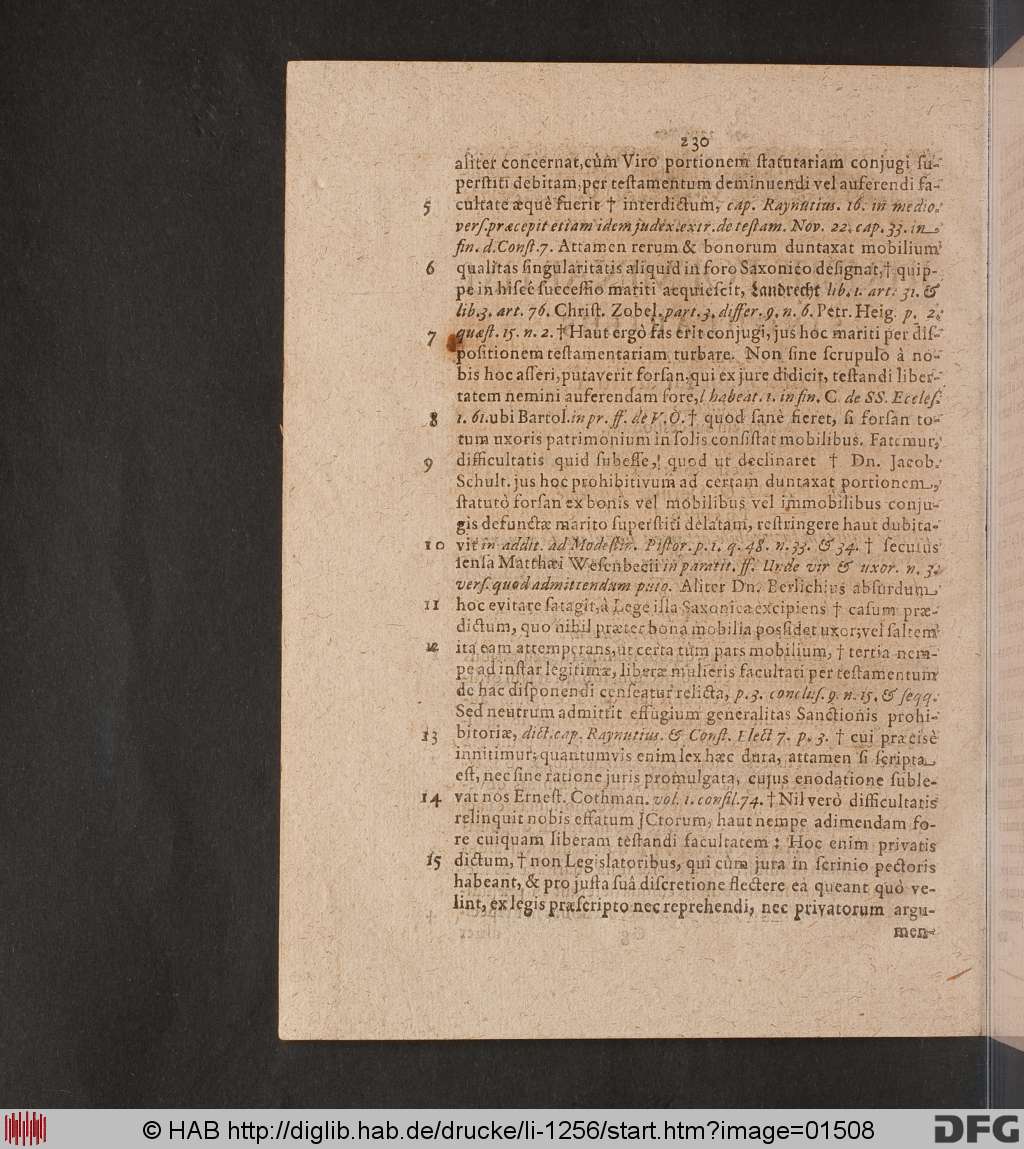 230
aliter concernat, cùm Viro portionem ſtatutariam conjugi ſu-
perſtiti debitam, per teſtamentum deminuendi vel auferendi fa-
5 cultate æquè fuerit † interdictum, cap. Raynutius. 16. in medio.
verſ. præcepit etiam idem judex. extr. de teſtam. Nov. 22. cap. 33. in
fin. d. Conſt. 7. Attamen rerum & bonorum duntaxat mobilium
6 qualitas ſingularitatis aliquid in foro Saxonico deſignat, † quip-
pe in hiſcè ſucceſſio mariti acquieſcit, Landrecht lib. 1. art. 31. &
lib. 3. art. 76. Chriſt. Zobel. part. 3. differ. 9. n. 6. Petr. Heig. p. 2.
7 quæſt. 15. n. 2. † Haut ergò fas erit conjugi, jus hoc mariti per diſ-
poſitionem teſtamentariam turbare. Non ſine ſcrupulo à no-
bis hoc aſſeri, putaverit forſan, qui ex jure didicit, teſtandi liber-
tatem nemini auferendam fore, l habeat. 1. in fin. C. de SS. Eccleſ.
8 l. 61. ubi Bartol. in pr. ff. de V. O. † quod ſanè fieret, ſi forſan to-
tum uxoris patrimonium in ſolis conſiſtat mobilibus. Fatemur,
9 difficultatis quid ſubeſſe, quod ut declinaret † Dn. Jacob.
Schult. jus hoc prohibitivum ad certam duntaxat portionem,
ſtatutò forſan ex bonis vel mobilibus vel immobilibus conju-
gis defunctæ marito ſuperſtiti delatam, reſtringere haut dubita-
10 vit in addit. ad Modeſtin. Piſtor. p. 1. q. 48. n. 33. & 34. † ſecutus
ſenſa Matthæi Weſenbecii in paratit. ff. Unde vir & uxor. n. 3.
verſ. quod admittendum puto. Aliter Dn. Berlichius abſurdum
11 hoc evitare ſatagit, à Lege iſta Saxonica excipiens † caſum præ-
dictum, quo nihil præter bona mobilia poſſidet uxor; vel ſaltem
12 ita eam attemperans, ut certa tùm pars mobilium, † tertia nem-
pe ad inſtar legitimæ, liberæ mulieris facultati per teſtamentum
de hac diſponendi cenſeatur relicta, p. 3. concluſ. 9. n. 15. & ſeqq.
Sed neutrum admittit effugium generalitas Sanctionis prohi-
13 bitoriæ, dict. cap. Raynutius. & Conſt. Elect 7. p. 3. † cui præcisè
innitimur; quantumvis enim lex hæc dura, attamen ſi ſcripta
eſt, nec ſine ratione juris promulgata, cujus enodatione ſuble-
14 vat nos Erneſt. Cothman. vol. 1. conſil. 74. † Nil verò difficultatis
relinquit nobis effatum JCtorum, haut nempe adimendam fo-
re cuiquam liberam teſtandi facultatem: Hoc enim privatis
15 dictum, † non Legislatoribus, qui cùm jura in ſcrinio pectoris
habeant, & pro juſta ſuâ diſcretione flectere ea queant quò ve-
lint, ex legis præſcripto nec reprehendi, nec privatorum argu-
men-
© HAB http://diglib.hab.de/drucke/li-1256/start.htm?image=01508
DFG